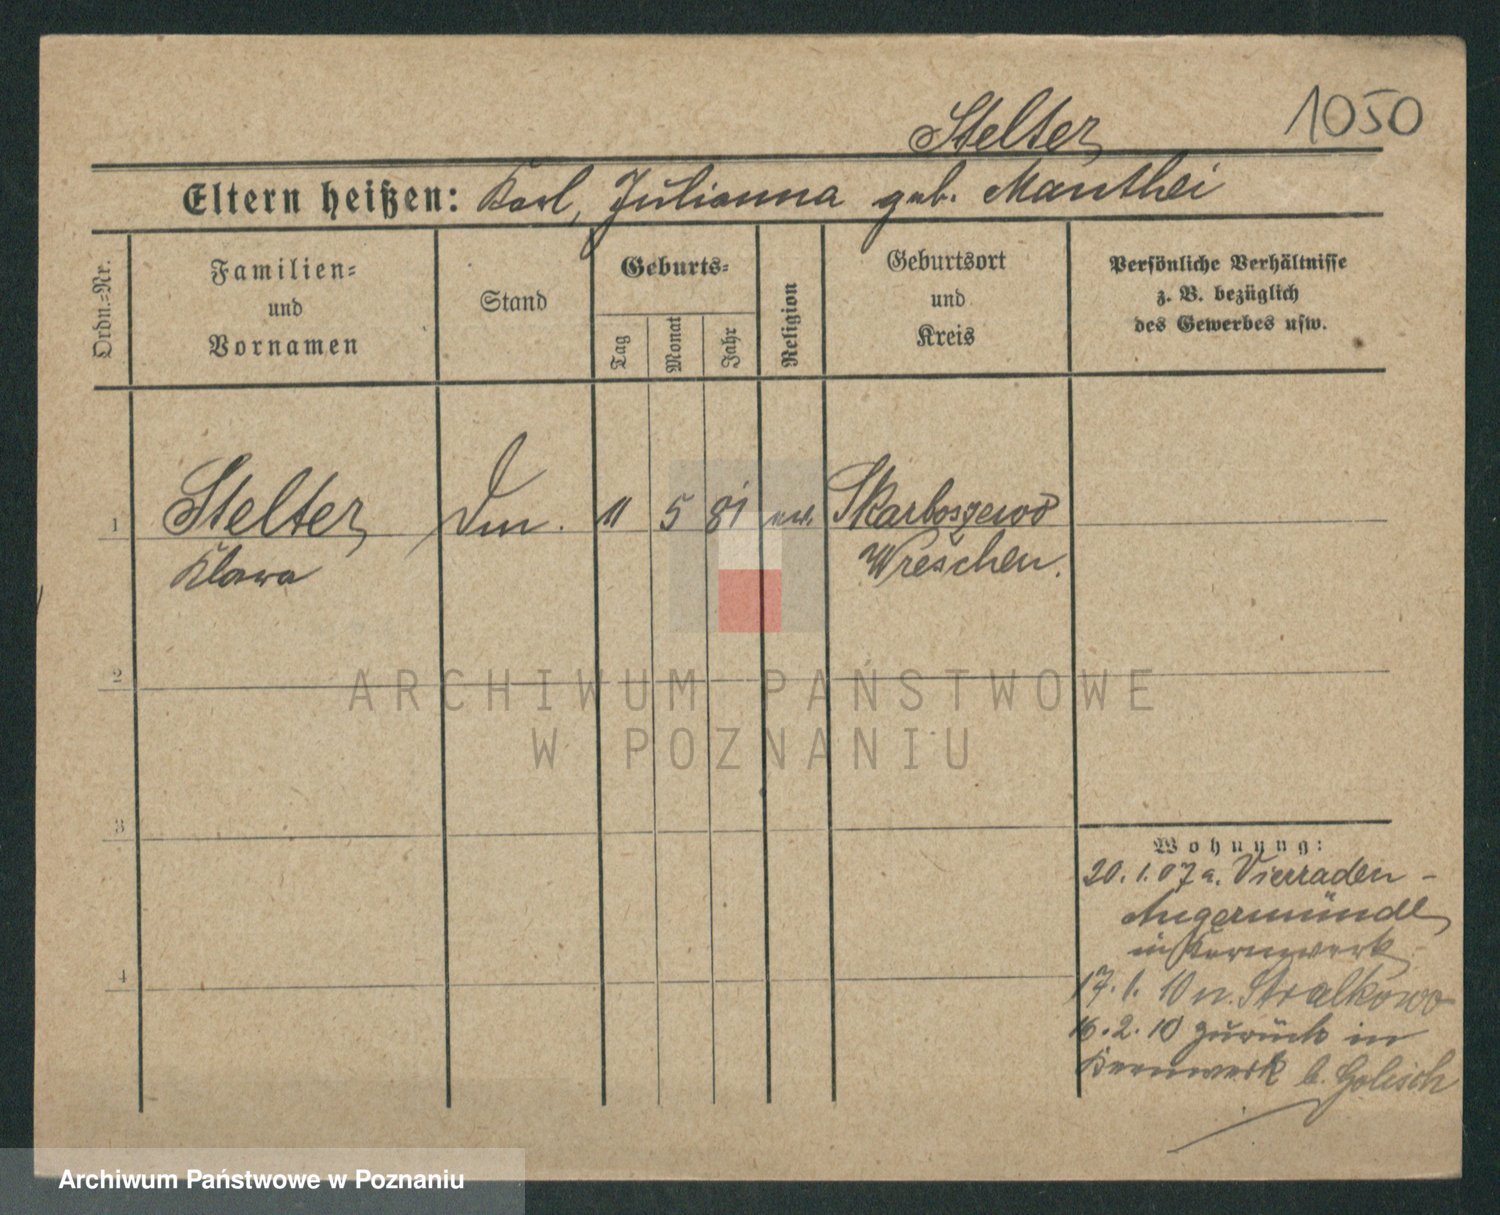 Stelter 1050
Eltern heißen: Karl, Julianna geb. Manthei
Ordn.=Nr.
Familien=
und
Vornamen
Stand
Geburts=
Tag
Monat
Jahr
Religion
Geburtsort
und
Kreis
Persönliche Verhältnisse
z. B. bezüglich
des Gewerbes usw.
1 Stelter 11 5 81 ev. Skarboszewo
Klara Wreschen.
2
3
4
Wohnung:
20. 1. 07 a. Vierraden -
Angermünde
in Kernwerk
17. 1. 10 n. Stralkowo
16. 2. 10 zurück in
Kernwerk b. Golisch
ARCHIWUM PAŃSTWOWE
W POZNANIU
Archiwum Państwowe w Poznaniu